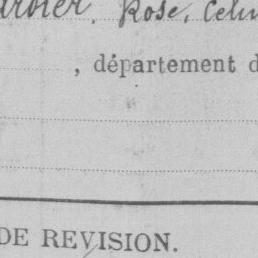 Rose, Célin
, département d
DE REVISION.